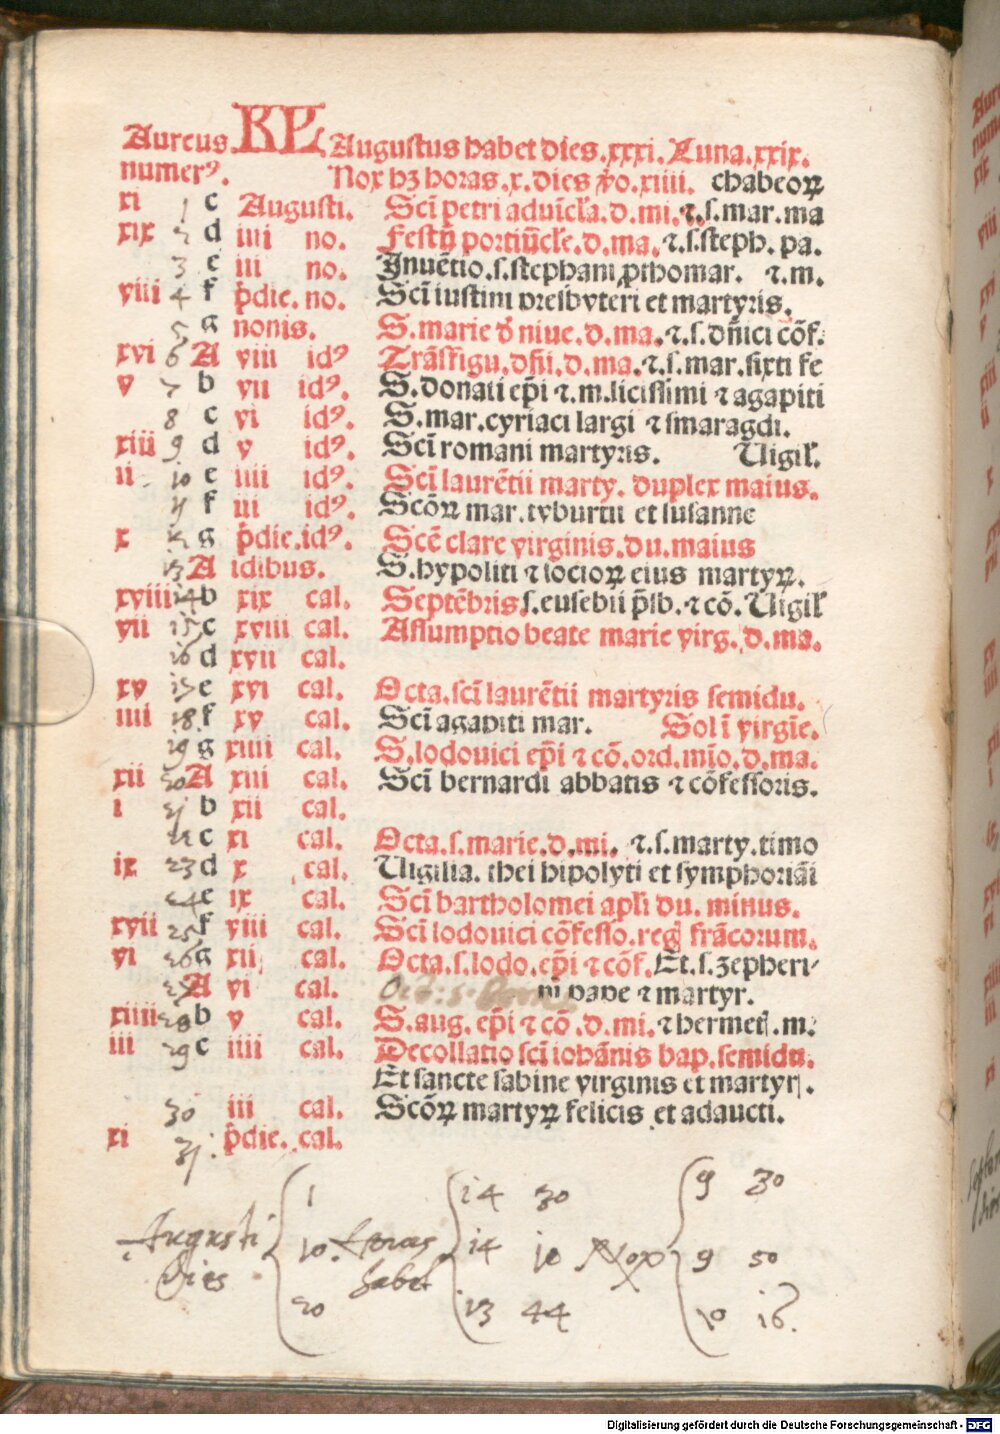 Aureus KL Augustus habet dies.xxxi. Luna.xxix.
numerꝰ. Nox hꝫ horas.x. dies ṽo.xiiii. chabeoꝝ
xi 1 c Augusti. Scī petri aduīcl'a.d.mi.⁊.s.mar.ma
xix 2 d iiii no. Festū portiūcle.d.ma.⁊.s.steph.pa.
3 e iii no. Inuētio.s.stephani ꝓthomar. ⁊.m.
viii 4 f p̄die.no. Scī iustini presbyteri et martyris.
5 g nonis. S.marie d' niue.d.ma.⁊.s.dn̄ici cōf.
xvi 6 A viii idꝰ Trāsfigu.dn̄i.d.ma.⁊.s.mar.sixti fe
v 7 b vii idꝰ. S.donati ep̄i ⁊.m.licissimi ⁊ agapiti
8 c vi idꝰ. S.mar.cyriaci largi ⁊ smaragdi.
xiii 9 d v idꝰ. Scī romani martyris. Uigil'.
ii 10 e iiii idꝰ. Scī laurētii marty. duplex maius.
11 f iii idꝰ. Scōꝝ mar.tyburtii et susanne
x 12 g p̄die.idꝰ. Scē clare virginis.du.maius
13 A idibus. S.hypoliti ⁊ socioꝝ eius martyꝝ.
xviii 14 b xix cal. Septēbris.s.eusebii p̄sb.⁊ cō. Uigil'
vii 15 c xviii cal. Assumptio beate marie virg.d.ma.
16 d xvii cal.
xv 17 e xvi cal. Octa.scī laurētii martyris semidu.
iiii 18 f xv cal. Scī agapiti mar. Sol ī virgīe.
19 g xiiii cal. S.lodouici ep̄i ⁊ cō.ord.mīo.d.ma.
xii 20 A xiii cal. Scī bernardi abbatis ⁊ cōfessoris.
i 21 b xii cal.
22 c xi cal. Octa.s.marie.d.mi. ⁊.s.marty.timo
ix 23 d x cal. Uigilia. thei hipolyti et symphoriāi
24 e ix cal. Scī bartholomei apl'i du. minus.
xvii 25 f viii cal. Scī lodouici cōfesso.reg frācorum.
vi 26 g xii cal. Octa.s.lodo.ep̄i ⁊ cōf.Et.s.zepheri-
27 A vi cal. Oct: s. ni pape ⁊ martyr.
xiiii 28 b v cal. S.aug.ep̄i ⁊ cō.d.mi.⁊ hermet.m.
iii 29 c iiii cal. Decollatio scī iohānis bap.semidu.
Et sancte sabine virginis et martyr.
30 iii cal. Scōꝝ martyꝝ felicis et adaucti.
xi 31. p̄die. cal.
Augusti dies { 1 10 20 Horas habet { 14 30 14 10 13 44 Nox { 9 30 9 50 10 16.
Digitalisierung gefördert durch die Deutsche Forschungsgemeinschaft - DFG